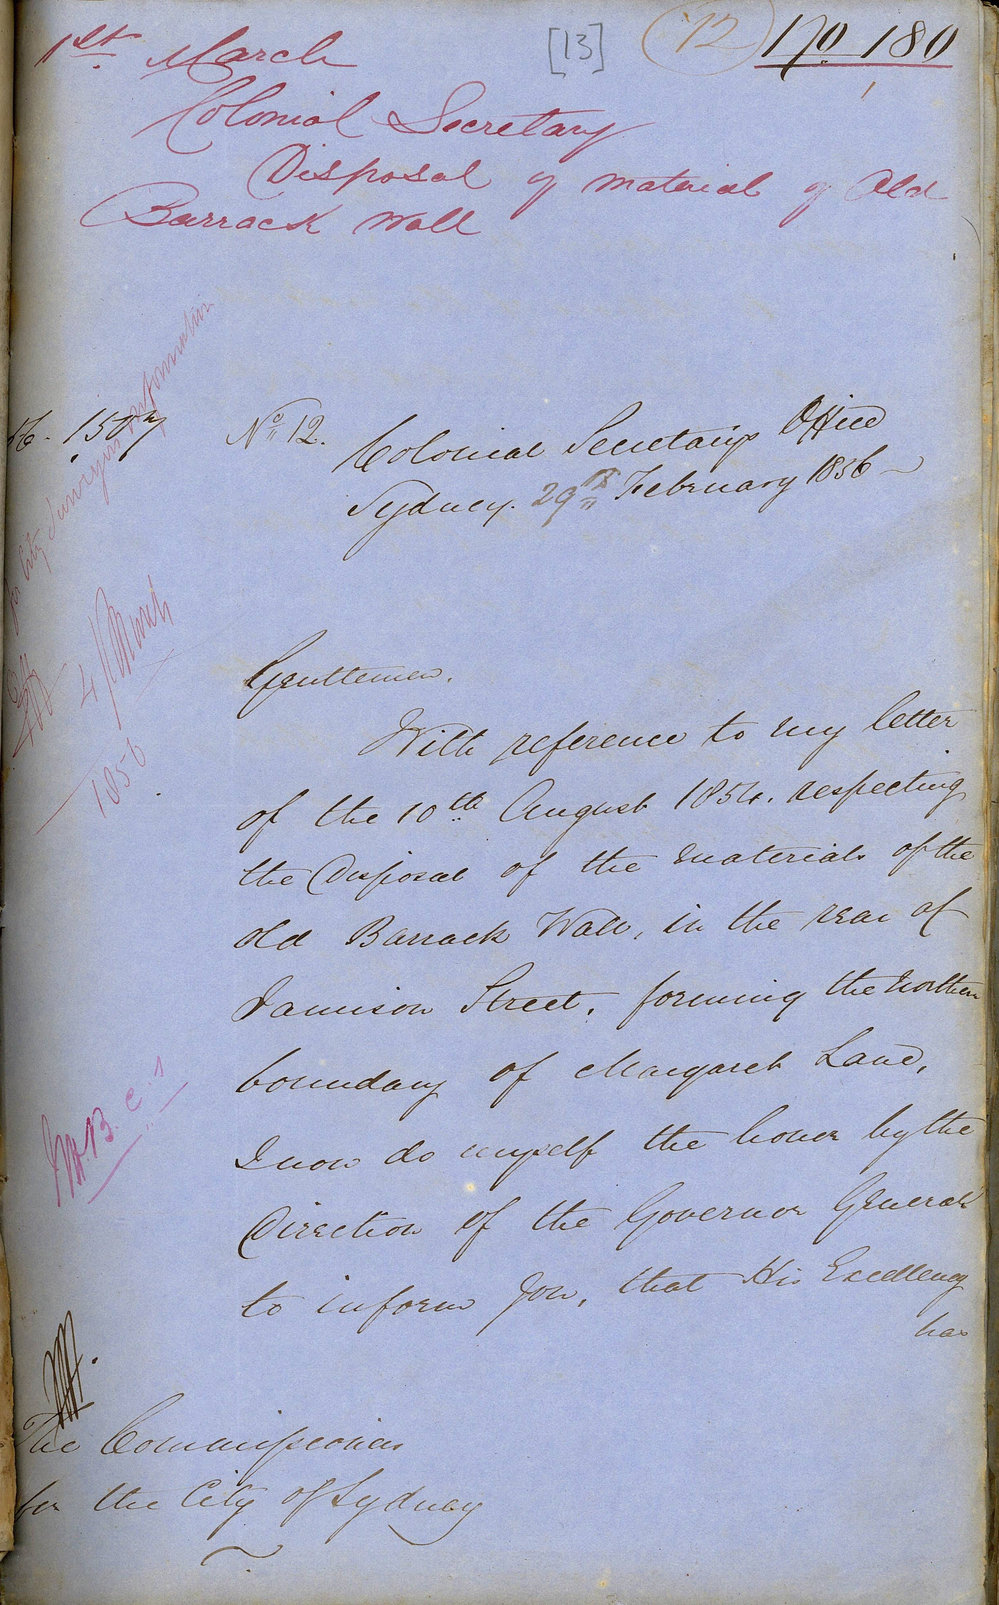 1st. March
[13]
12
No 180
Colonial Secretary
Disposal of material of Old
Barrack Wall
56. 150
No. 12.
Colonial Secretarys Office
Sydney. 29th February 1856
for City Surveyors information
4 March
1856
Gentlemen.
With reference to my letter
of the 10th. August 1854. respecting
the Disposal of the materials of the
old Barrack Wall, in the rear of
Jamison Street, forming the northern
boundary of Margaret Lane,
I now do myself the honor by the
Direction of the Governor General
to inform you, that His Excellency
has
The Commissioners
for the City of Sydney